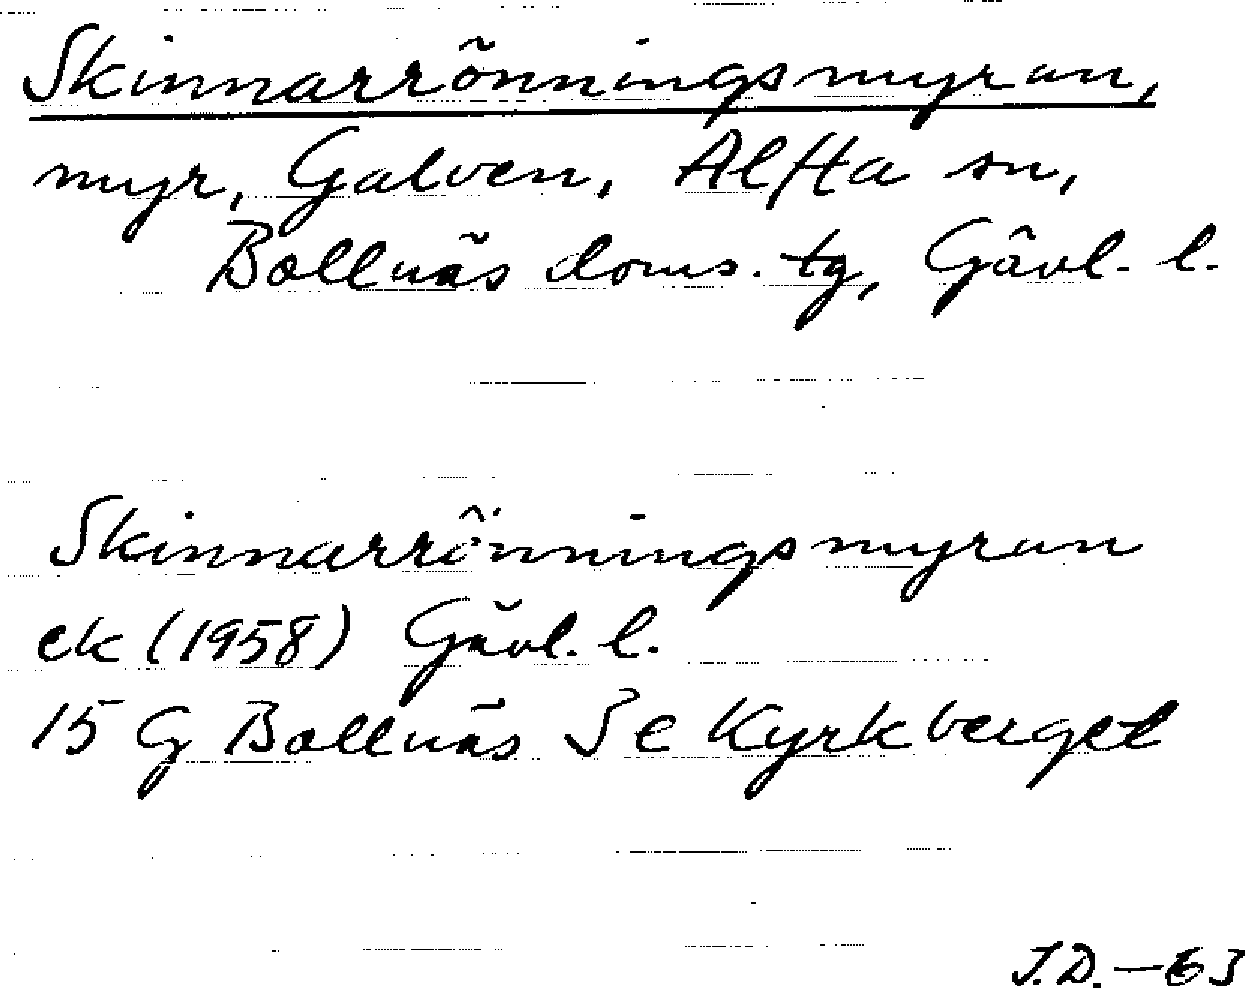 Skinnarrönningsmyran,
myr, Galven, Alfta sn,
Bollnäs doms. tg, Gävl. l.
Skinnarrönningsmyran
ek (1958) Gävl. l.
15 G Bollnäs 3 e Kyrkberget
J.D. — 63